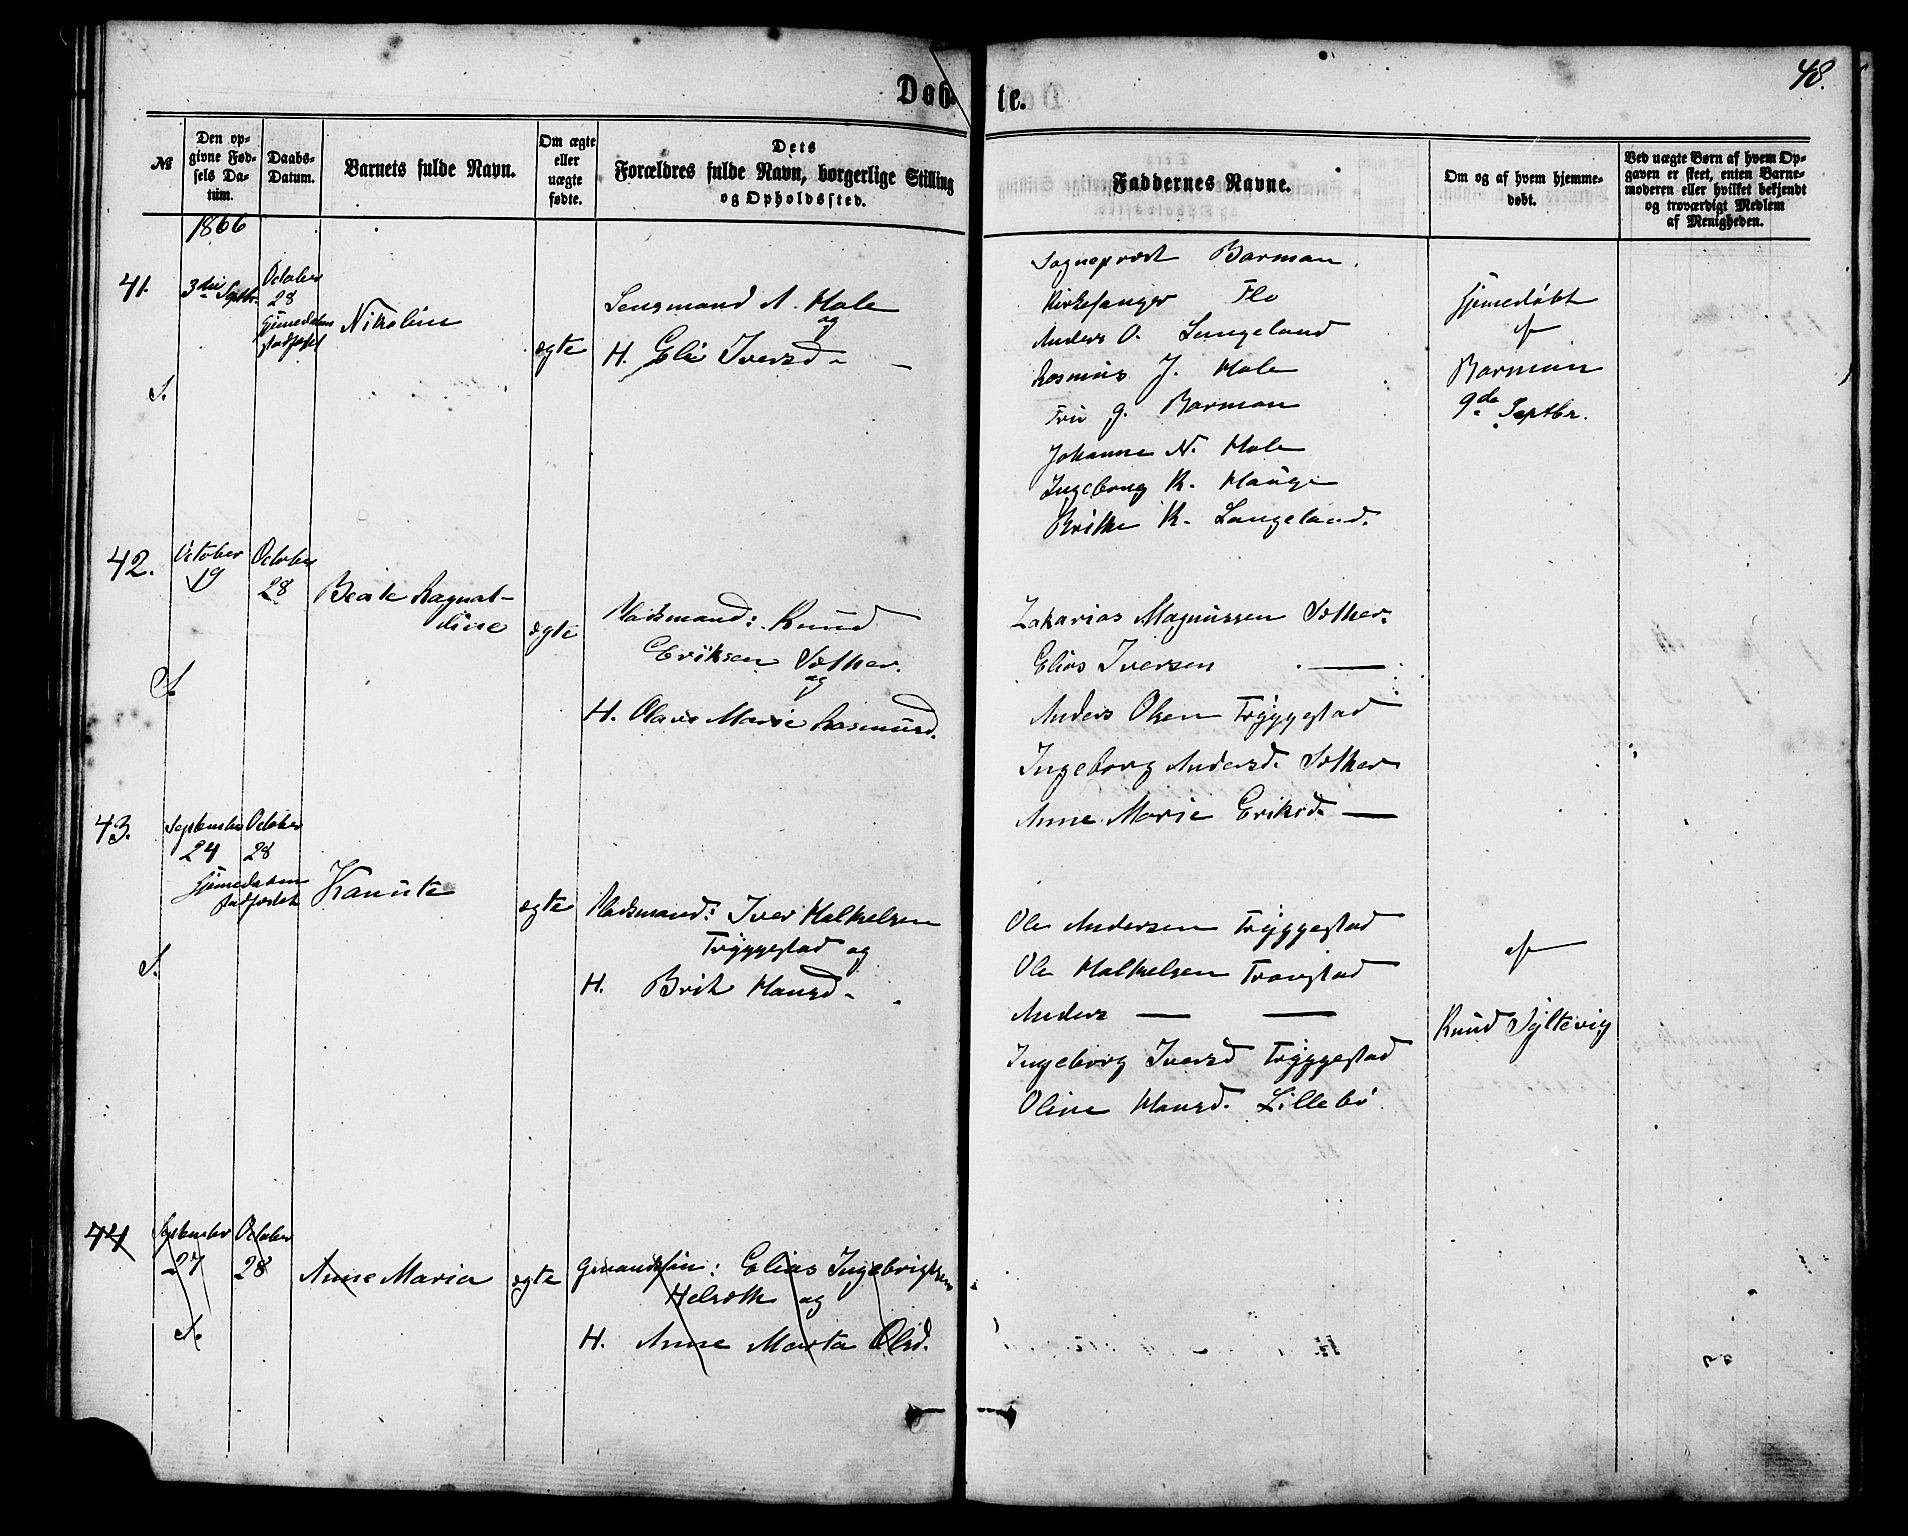 Døb-
te.
48.
№
Den op-
givne Fød-
sels Da-
tum.
Daabs-
Datum.
Barnets fulde Navn.
Om ægte
eller
uægte
fødte.
Dets
Forældres fulde Navn, borgerlige Stilling
og Opholdssted.
Faddernes Navne.
Om og af hvem hjemme-
døbt.
Ved uægte Børn af hvem Op-
gaven er skeet, enten Barne-
moderen eller hvilket bekjendt
og troværdigt Medlem
af Menigheden.
1866
41.
3die Septbr.
October
28
Hjemedaaben
stadfæstet
Nikoline
ægte
Lensmand A. Hole
og
H. Eli Iversd. —
S.
Sogneprest Barman.
Kirkesanger Flo
Anders O. Langeland
Rasmus J. Hole
Fru G. Barman
Johanne N. Hole
Ingeborg K. Hauge
Brithe K. Langeland.
Hjemedøbt
af
Barman
9de Septbr.
42.
October
19
October
28
Beate Ragnal-
dine
ægte
Pladsmand: Knud
Eriksen Sæther.
og
H. Olave Marie Rasmusd.
S.
Zakarias Magnussen Sæther.
Elias Iversen —
Anders Olsen Tryggestad
Ingeborg Andersd. Sæther
Anne Marie Eriksd. —
43.
September
24
October
28
Hjemedaaben
stadfæstet
Kanute
ægte
Pladsmand: Iver Halkelsen
Tryggestad og
H. Brit Hansd.
S.
Ole Andersen Tryggestad
Ole Halkelsen Travstad
Anders — —
Ingeborg Iversd Tryggestad
Oline Hansd. Lillebø
af
Knud Syltevig
44
September
27
October
28
Anne Maria
ægte
Gmandssøn: Elias Ingebrigtsen
Helsæth og
H. Anne Marta Olsd.
S.